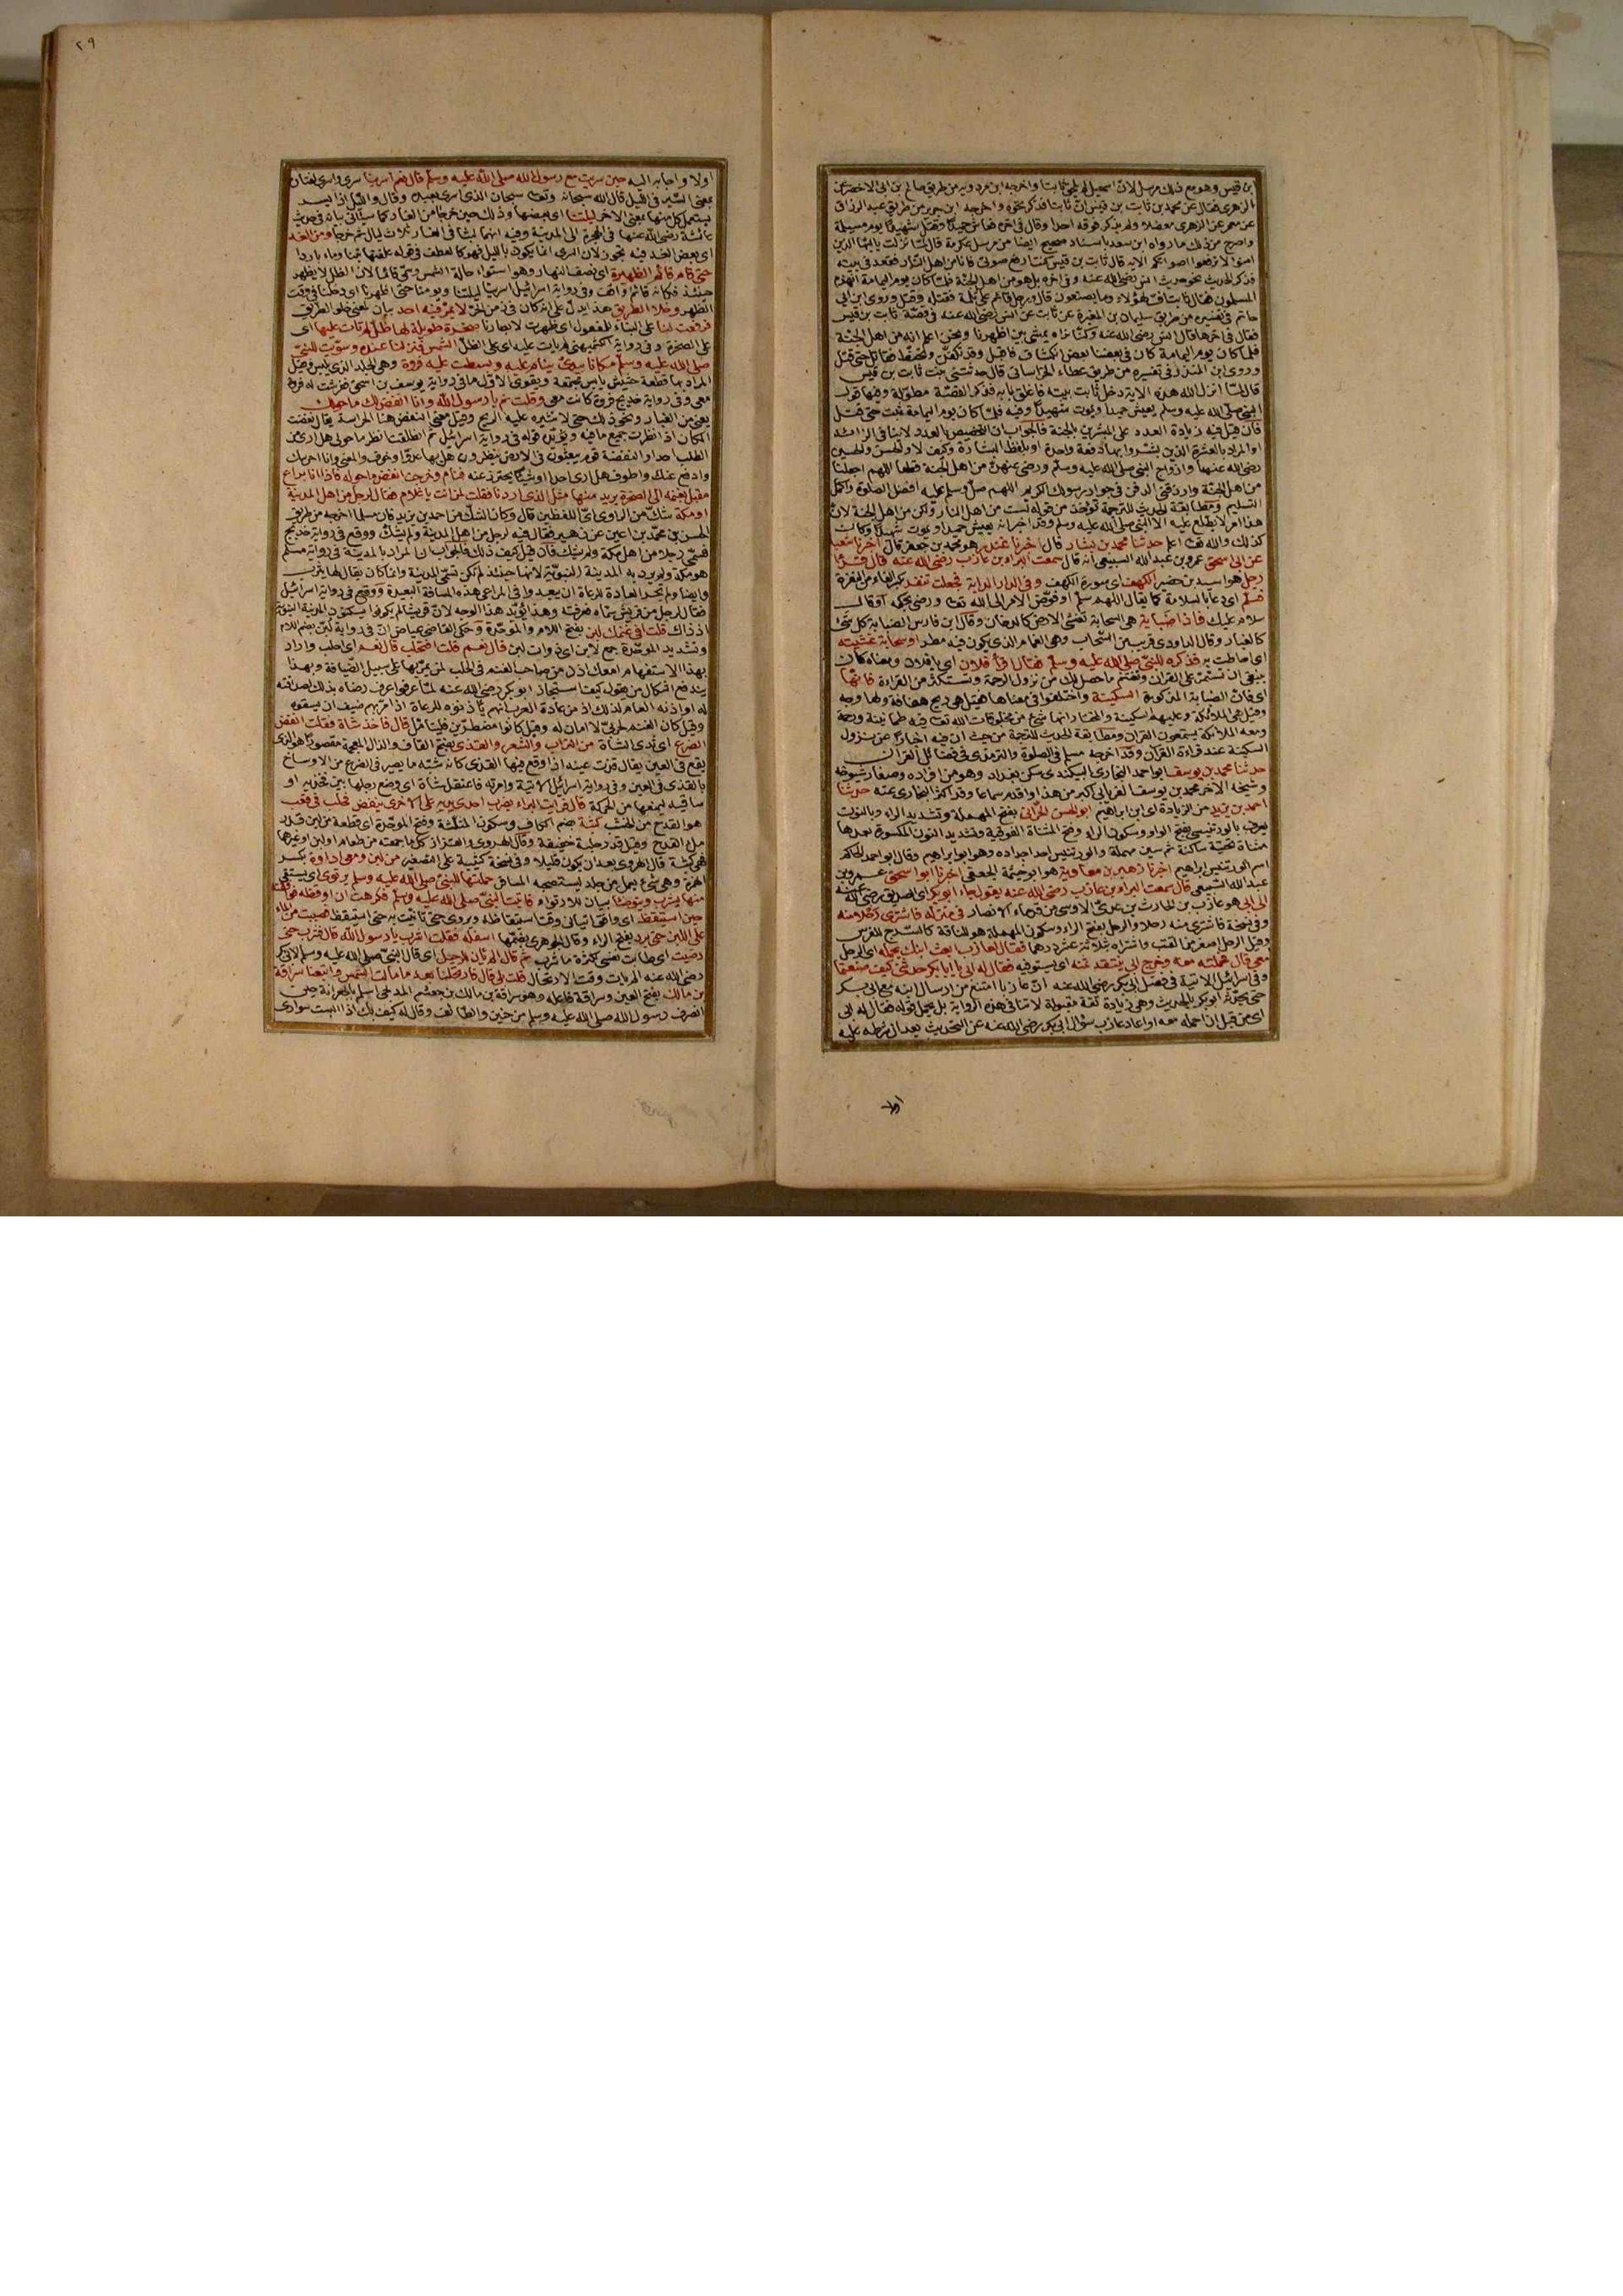 بن قيس وهو مع ذلك مرسل لان اسمعيل لم يلحق ثابتا واخرجه ابن مردويه من طريق صالح بن ابى الاخضر عن
الزهرى فقال عن محمد بن ثابت بن قيس ان ثابتا فذكر نحوه واخرجه ابن جرير من طريق عبد الرزاق
عن معمر عن الزهرى معضلا ولم يذكر فوقه احدا وقال فى اخره فعاش حميدا وقتل شهيدا يوم مسيلمة
واصرح من ذلك ما رواه ابن سعد باسناد صحيح ايضا من مرسل عكرمة قال لما نزلت يا ايها الذين
امنوا لا ترفعوا اصواتكم الاية قال ثابت بن قيس كنت ارفع صوتى فانا من اهل النار فقعد فى بيته
فذكر الحديث نحو حديث انس رضى الله عنه وفى اخره بل هو من اهل الجنة فلما كان يوم اليمامة انهزم
المسلمون فقال ثابت اف لهؤلاء وما يصنعون قال ورجل قائم على ثلمة فقتله وقتل وروى ابن ابى
حاتم فى تفسيره من طريق سليمان بن المغيرة عن ثابت عن انس رضى الله عنه فى قصة ثابت بن قيس
فقال فى اخرها قال انس رضى الله عنه وكنا نراه يمشى بين اظهرنا ونحن اعلم انه من اهل الجنة
فلما كان يوم اليمامة كان فى بعضنا بعض انكشاف فاقبل وقد تكفن وتحنط فقاتل حتى قتل
وروى ابن المنذر فى تفسيره من طريق عطاء الخراسانى قال حدثتنى بنت ثابت بن قيس
قالت لما انزل الله هذه الاية دخل ثابت بيته فاغلق بابه فذكر القصة مطولة وفيها قول
النبى صلى الله عليه وسلم يعيش حميدا ويموت شهيدا وفيه فلما كان يوم اليمامة ثبت حتى قتل
فان قيل فيه زيادة العدد على المبشرين بالجنة فالجواب ان التخصيص بالعدد لا ينافى الزائد
او المراد بالعشرة الذين بشروا بها دفعة واحدة او بلفظ البشارة وكيف لا والحسن والحسين
رضى الله عنهما وازواج النبى صلى الله عليه وسلم ورضى عنهن من اهل الجنة قطعا اللهم اجعلنا
من اهل الجنة وارزقنى الدفن فى جوار رسولك الكريم اللهم صل وسلم عليه افضل الصلوة واكمل
التسليم ومطابقة الحديث للترجمة تؤخذ من قوله لست من اهل النار ولكن من اهل الجنة لان
هذا امر لا يطلع عليه الا النبى صلى الله عليه وسلم وقد اخبر انه يعيش حميدا ويموت شهيدا وكان
كذلك والله تعالى اعلم حدثنا محمد بن بشار قال اخبرنا غندر هو محمد بن جعفر قال اخبرنا شعبة
عن ابى اسحق عمرو بن عبد الله السبيعى انه قال سمعت البراء بن عازب رضى الله عنه قال قرأ
رجل هو اسيد بن حضير الكهف اى سورة الكهف وفى الدار الدابة فجعلت تنفر بكسر الفاء من النفرة
فسلم اى دعا بالسلامة كما يقال اللهم سلم او فوض الامر الى الله تعالى ورضى بحكمه او قال
سلام عليك فاذا ضبابة هى السحابة تغشى الارض كالدخان وقال ابن فارس الضبابة كل شئ
كالغبار وقال الداودى قريب من السحاب وهى الغمام الذى يكون فيه مطر او سحابة غشيته
اى احاطت به فذكره للنبى صلى الله عليه وسلم فقال اقرأ فلان اى يا فلان ومعناه كان
ينبغى ان تستمر على القران وتغتنم ما حصل لك من نزول الرحمة وتستكثر من القراءة فانها
اى فان الضبابة المذكورة السكينة واختلفوا فى معناها فقيل هى ريح هفافة ولها وجه
وقيل هى الملائكة وعليهم السكينة والمختار انها شئ من مخلوقات الله تعالى فيه طمانينة ورحمة
ومعه الملائكة يستمعون القران ومطابقة الحديث للترجمة من حيث ان فيه اخبارا عن نزول
السكينة عند قراءة القران وقد اخرجه مسلم فى الصلوة والترمذى فى فضائل القران
حدثنا محمد بن يوسف ابو احمد البخارى البيكندى سكن بغداد وهو من افراده وصغار شيوخه
وشيخه الاخر محمد بن يوسف الفريابى اكبر من هذا واقدم سماعا وقد اكثر البخارى عنه حدثنا
احمد بن يزيد من الزيادة اى ابن ابراهيم ابو الحسن الحرانى بفتح المهملة وتشديد الراء وبالنون
يعرف بالورتنيسى بفتح الواو وسكون الراء وفتح المثناة الفوقية وتشديد النون المكسورة بعدها
مثناة تحتية ساكنة ثم سين مهملة والورتنيس احد اجداده وهو ابو ابراهيم وقال ابو احمد الحاكم
اسم الورتنيس ابراهيم اخبرنا زهير بن معاوية هو ابو خيثمة الجعفى اخبرنا ابو اسحق عمرو بن
عبد الله السبيعى قال سمعت البراء بن عازب رضى الله عنه يقول جاء ابو بكر اى الصديق رضى الله عنه
الى ابى هو عازب بن الحارث بن عدى الاوسى من قدماء الانصار فى منزله فاشترى رحلا منه
وفى نسخة فاشترى منه رحلا والرحل بفتح الراء وسكون المهملة هو للناقة كالسرج للفرس
وقيل الرحل اصغر من القتب واشتراه بثلاثة عشر درهما فقال لعازب ابعث ابنك يحمله اى الرحل
معى قال فحملته معه وخرج ابى ينتقد ثمنه اى يستوفيه فقال له ابى يا ابا بكر حدثنى كيف صنعتما
وفى اسرائيل الاتية فى فضل ابى بكر رضى الله عنه ان عازبا امتنع من ارسال ابنه مع ابى بكر
حتى يحدثه ابو بكر بالحديث وهى زيادة ثقة مقبولة لا تنافى هذه الرواية بل يحمل قوله فقال له ابى
اى من قبل ان احمله معه او اعاد عازب سؤال ابى بكر رضى الله عنه عن التحديث بعد ان شرطه عليه
اولا
٢٩
اولا واجابه اليه حين سريت مع رسول الله صلى الله عليه وسلم قال نعم اسرينا سرى واسرى لغتان
بمعنى السير فى الليل قال الله سبحانه وتعالى سبحان الذى اسرى بعبده وقال والليل اذا يسر
يستعمل كل منهما بمعنى الاخر ليلتنا اى بعضها وذلك حين خرجا من الغار كما سيأتى بيانه فى حديث
عائشة رضى الله عنها فى الهجرة الى المدينة وفيه انهما لبثا فى الغار ثلاث ليال ثم خرجا ومن الغد
اى بعض الغد فيه تجوز لان السرى انما يكون بالليل فهو كالعطف فى قوله علفتها تبنا وماء باردا
حتى قام قائم الظهيرة اى نصف النهار وهو استواء حالة الشمس وسمى قائما لان الظل لا يظهر
حينئذ فكانه قائم واقف وفى رواية اسرائيل اسرينا ليلتنا ويومنا حتى اظهرنا اى دخلنا فى وقت
الظهر وخلا الطريق هذا يدل على انه كان فى زمن الحر لا يمر فيه احد بيان لمعنى خلو الطريق
فرفعت لنا على البناء للمفعول اى ظهرت لابصارنا صخرة طويلة لها ظل لم تات عليها اى
على الصخرة وفى رواية الكشميهنى لم يات عليه اى على الظل الشمس فنزلنا عنده وسويت للنبى
صلى الله عليه وسلم مكانا بيدى ينام عليه وبسطت عليه فروة وهى الجلد الذى يلبس وقيل
المراد بها قطعة حشيش يابس مجتمعة ويقوى الاول ما فى رواية يوسف بن اسحق ففرشت له فروة
معى وفى رواية خديج فروة كانت معى وقلت نم يا رسول الله وانا انفض لك ما حولك
يعنى من الغبار ونحو ذلك حتى لا تثيره عليه الريح وقيل معنى النفض هنا الحراسة يقال نفضت
المكان اذا نظرت جميع ما فيه ويؤيده قوله فى رواية اسرائيل ثم انطلقت انظر ما حولى هل ارى من
الطلب احدا والنفضة قوم يبعثون فى الارض ينظرون هل بها عدو او خوف والمعنى وانا احرسك
وادفع عنك واطوف هل ارى احدا او شيئا يحترز عنه فنام وخرجت انفض ما حوله فاذا انا براع
مقبل بغنمه الى الصخرة يريد منها مثل الذى اردنا فقلت لمن انت يا غلام فقال لرجل من اهل المدينة
او مكة شك من الراوى اى اللفظين قال وكان الشك من احمد بن يزيد فان مسلما اخرجه من طريق
الحسن بن محمد بن اعين عن زهير فقال فيه لرجل من اهل المدينة ولم يشك ووقع فى رواية خديج
فسمى رجلا من اهل مكة ولم يشك فان قيل كيف ذلك فالجواب ان المراد بالمدينة فى رواية مسلم
هو مكة ولم يرد به المدينة النبوية لانها حينئذ لم تكن تسمى المدينة وانما كان يقال لها يثرب
وايضا ولم تجر العادة للرعاة ان يبعدوا فى المراعى هذه المسافة البعيدة ووقع فى رواية اسرائيل
فقال لرجل من قريش سماه فعرفته وهذا يؤيد هذا الوجه لان قريشا لم يكونوا يسكنون المدينة النبوية
اذ ذاك قلت افى غنمك لبن بفتح اللام والموحدة وحكى القاضى عياض ان فى رواية لبن بضم اللام
وتشديد الموحدة جمع لابن اى ذوات لبن قال نعم قلت افتحلب قال نعم اى احلب واراد
بهذا الاستفهام امعك اذن من صاحب الغنم فى الحلب لمن يمر بها على سبيل الضيافة وبهذا
يندفع اشكال من يقول كيف استجاز ابو بكر رضى الله عنه لما عرفوا عرف رضاه بذلك لصداقته
له او اذنه العام لذلك اذ من عادة العرب انهم ياذنوه للرعاة اذا مر بهم ضيف ان يسقوه
وقيل كان الغنم لحربى لا امان له وقيل كانوا مضطرين فليتامل قال فاخذ شاة فقلت انفض
الضرع اى ثدى الشاة من التراب والشعر والقذى بفتح القاف والذال المعجمة مقصورا هو الذى
يقع فى العين يقال قذيت عينه اذا وقع فيها القذى كانه شبه ما يصير فى الضرع من الاوساخ
بالقذى فى العين وفى رواية اسرائيل الاتية وامرته فاعتقل شاة اى وضع رجلها بين فخذيه او
ساقيه ليمنعها من الحركة قال فرايت البراء يضرب احدى يديه على الاخرى ينفض فحلب فى قعب
هو القدح من الخشب كثبة بضم الكاف وسكون المثلثة وفتح الموحدة اى قطعة من لبن قدر
ملء القدح وقيل قدر حلبة خفيفة وقال الهروى والقزاز كل ما جمعته من طعام او لبن او غيرهما
فهى كثبة قال الهروى بعد ان يكون قليلا وفى نسخة كثيبة على التصغير من لبن ومعى اداوة بكسر
الهمزة وهى شئ يعمل من جلد ليستصحبه المسافر حملتها للنبى صلى الله عليه وسلم يرتوى اى يستقى
منها يشرب ويتوضأ بيان للارتواء فاتيت النبى صلى الله عليه وسلم فكرهت ان اوقظه فوافقته
حين استيقظ اى وافق اتيانى وقت استيقاظه ويروى حتى تانيت به حتى استيقظ فصببت من الماء
على اللبن حتى برد بفتح الراء وقال الجوهرى بضمها اسفله فقلت اشرب يا رسول الله قال فشرب حتى
رضيت اى طابت نفسى لكثرة ما شرب ثم قال الم يأن للرحيل اى قال النبى صلى الله عليه وسلم لابى بكر
رضى الله عنه الم يات وقت الارتحال قلت بلى قال فارتحلنا بعد ما مالت الشمس واتبعنا سراقة
بن مالك بفتح العين وسراقة فاعله وهو سراقة بن مالك بن جعشم المدلجى اسلم بالجعرانة حين
انصرف رسول الله صلى الله عليه وسلم من حنين والطائف وقال له كيف بك اذا البست سوارى